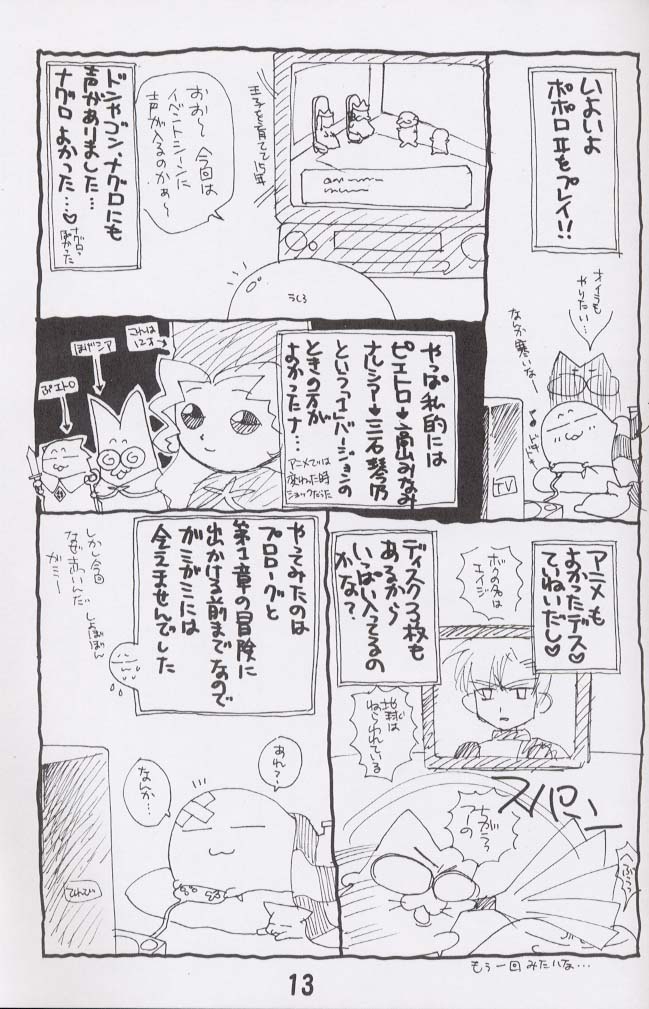 いよいよ
ポポロⅡをプレイ!!
オイラも
やりたい…
なんか寒いなー
TV
王子を育てて15年
おお〜今回は
イベントシーンに
声が入るのかぁ〜
ドンやゴン、ナグロにも
声がありました…
ナグロよかった…♡
ナグロ・
よかった
うしろ
やっぱ私的には
ピエトロ→高山みなみ
ナルシア→三石琴乃
というバージョンの
ときの方が
よかったナ…
アニメでは
変わった時
ショックだった
これは
12才→
ぷエトロ
アニメも
よかったデス♡
ていねいだし♡
ディスク3枚も
あるから
いっぱい入ってるの
かな?
ボクの名は
エイジ
地球は
ねらわれている
スパパン
ちがう
アーの
へぶっ
もう一回みたいな…
やってみたのは
プロローグと
第1章の冒険に
出かける前までなので
ガミガミには
会えませんでした
しかし今回
なぜ赤いんだ
ガミー
しょぼぼん
あれ?
なんか…
てれび
13